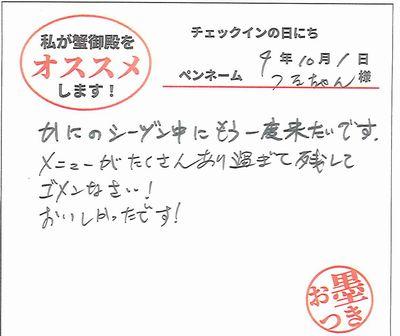 私が蟹御殿を
オススメ
します！
チェックインの日にち
9年10月1日
ペンネーム つるちゃん 様
かにのシーズン中にもう一度来たいです.
メニューがたくさんあり過ぎて残して
ゴメンなさい!
おいしかったです!
お墨つき